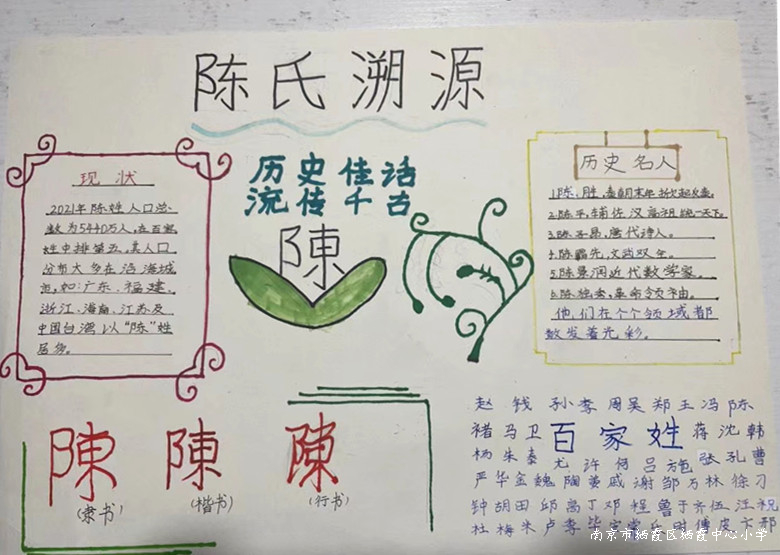 陈氏溯源
历史佳话
流传千古
陳
现状
2021年陈姓人口总
数为5440万人，在百家
姓中排第五，其人口
分布大多在沿海城
市，如：广东、福建、
浙江、海南、江苏及
中国台湾以“陈”姓
居多。
历史名人
1.陈胜，秦朝末年
2.陈平，辅佐汉高祖统一天下。
3.陈子昂，唐代诗人。
4.陈霸先，文武双全。
5.陈景润近代数学家。
6.陈独秀，革命领袖。
他们在个个领域都
散发着光彩。
陳 陳 陳
(隶书) (楷书) (行书)
赵 钱 孙李 周吴郑王冯陈
褚马卫 百家姓 蒋沈韩
杨朱秦 尤许何吕施张孔曹
严华金魏陶姜戚谢邹 万林徐刁
钟胡田邱高丁邓 程鲁于齐伍汪祝
杜梅朱卢季毕安常丘 傅皮卞邢
南京市栖霞区栖霞中心小学